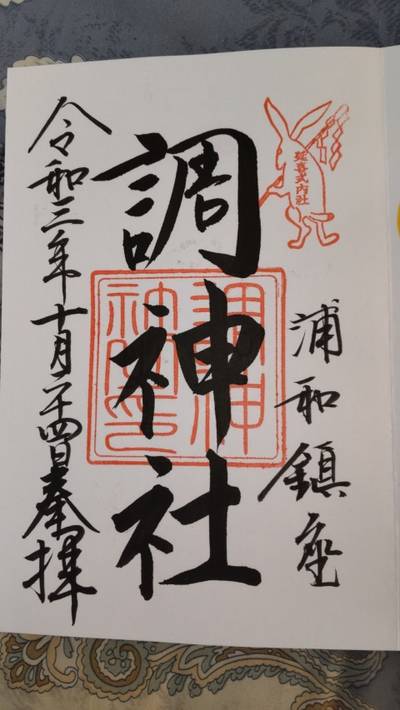 延喜式内社
浦和鎮座
調神社
令和三年十月二十四日奉拝